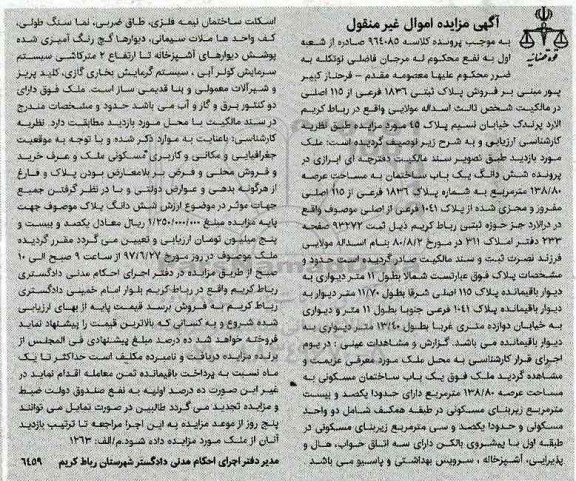 آگهی مزایده اموال غیر منقول
به موجب پرونده کلاسه ۹۶۴۰۸۵ صادره از شعبه
اول به نفع محکوم له مرجان فاضلی توتکله به
ضرر محکوم علیها معصومه مقدم - فرحناز کبیر
پور مبنی بر فروش پلاک ثبتی ۱۸۳۶ فرعی از ۱۱۵ اصلی
در مالکیت شخص ثالث اسداله مولایی واقع در رباط کریم
الارد پرندک خیابان نسیم پلاک ۴۵ مورد مزایده طبق نظریه
کارشناسی ارزیابی و به شرح زیر توصیف گردیده است: ملک
مورد بازدید طبق تصویر سند مالکیت دفترچه ای ابرازی در
پرونده شش دانگ یک باب ساختمان به مساحت عرصه
۱۳۸/۸۰ مترمربع به شماره پلاک ۱۸۳۶ فرعی از ۱۱۵ اصلی
مفروز و مجزی شده از پلاک ۱۰۴۱ فرعی از اصلی موصوف واقع
در درالارد جز حوزه ثبتی رباط کریم ذیل ثبت ۹۳۲۷۲ صفحه
۲۳۳ دفتر املاک ۳۱۱ در مورخ ۸۰/۸/۲ بنام اسداله مولایی
فرزند نصرت ثبت و سند مالکیت صادر گردیده است حدود و
مشخصات پلاک فوق عبارتست شمالا بطول ۱۱ متر دیواری به
دیوار باقیمانده پلاک ۱۱۵ اصلی شرقا بطول ۱۱/۷۰ متر دیوار به
دیوار باقیمانده پلاک ۱۰۴۱ فرعی جنوبا بطول ۱۱ متر و دیواری
به خیابان دوازده متری غربا بطول ۱۳/۴۰ متر دیواری به
دیوار باقیمانده می باشد. گزارش و مشاهدات عینی : در یوم
اجرای قرار کارشناسی به محل ملک مورد معرفی عزیمت و
مشاهده گردید ملک فوق یک باب ساختمان مسکونی به
مساحت عرصه ۱۳۸/۸۰ مترمربع دارای حدودا یکصد و بیست
مترمربع زیربنای مسکونی در طبقه همکف شامل دو واحد
مسکونی و حدودا یکصد و سی مترمربع زیربنای مسکونی در
طبقه اول با پیشروی بالکن دارای سه اتاق خواب، هال و
پذیرایی، آشپزخانه ، سرویس بهداشتی و پاسیو می باشد
اسکلت ساختمان نیمه فلزی، طاق ضربی، نما سنگ طولی،
کف واحد ها ملات سیمانی، دیوارها گچ رنگ آمیزی شده
پوشش دیوارهای آشپزخانه تا ارتفاع ۲ مترکاشی سیستم
سرمایش کولر آبی ، سیستم گرمایش بخاری گازی، کلید پریز
و شیرآلات معمولی و بنا قدیمی ساز است. ملک فوق دارای
دو کنتور برق و گاز و آب می باشد حدود و مشخصات مندرج
در سند مالکیت با محل مورد بازدید مطابقت دارد. نظریه
کارشناسی: باعنایت به موارد ذکر شده و با توجه به موقعیت
جغرافیایی و مکانی و کاربری مسکونی ملک و عرف خرید
و فروش محلی و فرض بر بلامعارض بودن پلاک و فارغ
از هرگونه بدهی و عوارض دولتی و با در نظر گرفتن جمیع
جهات موثر در موضوع ارزش شش دانگ پلاک موصوف جهت
پایه مزایده مبلغ ۱/۲۵۰/۰۰۰/۰۰۰ ریال معادل یکصد و بیست و
پنج میلیون تومان ارزیابی و تعیین می گردد مقرر گردیده
ملک موصوف در روز مورخ ۹۷/۱/۲۷ از ساعت ۹ صبح الی ۱۰
صبح از طریق مزایده در دفتر اجرای احکام مدنی دادگستری
رباط کریم واقع در رباط کریم بلوار امام خمینی دادگستری
رباط کریم به فروش برسد قیمت پایه از بهای ارزیابی
شده شروع و به کسانی که بالاترین قیمت را پیشنهاد نماید
فروخته خواهد شد ده درصد مبلغ پیشنهادی فی المجلس از
برنده مزایده دریافت و نامبرده مکلف است حداکثر تا یک
ماه نسبت به پرداخت باقیمانده ثمن معامله اقدام نماید در
غیر این صورت ده درصد اولیه به نفع صندوق دولت ضبط
و مزایده تجدید می گردد طالبین در صورت تمایل می توانند
پنج روز از موعد مزایده به این اجرا مراجعه تا ترتیب بازدید
آنان از ملک مورد مزایده داده شود.م/الف: ۱۳۶۳
مدیر دفتر اجرای احکام مدنی دادگستر شهرستان رباط کریم ۶۴۵۹
قوه قضائیه